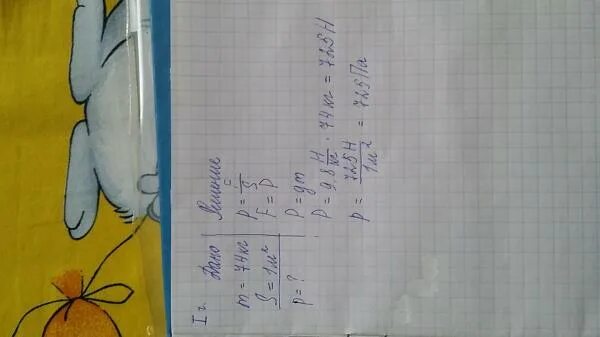 I г.
Дано
m = 74кг
S = 1м²
p = ?
Решение
p = F/S
F = P
P = gm
P = 9,8 Н/кг · 74кг = 725Н
p = 725Н/1м² = 725Па